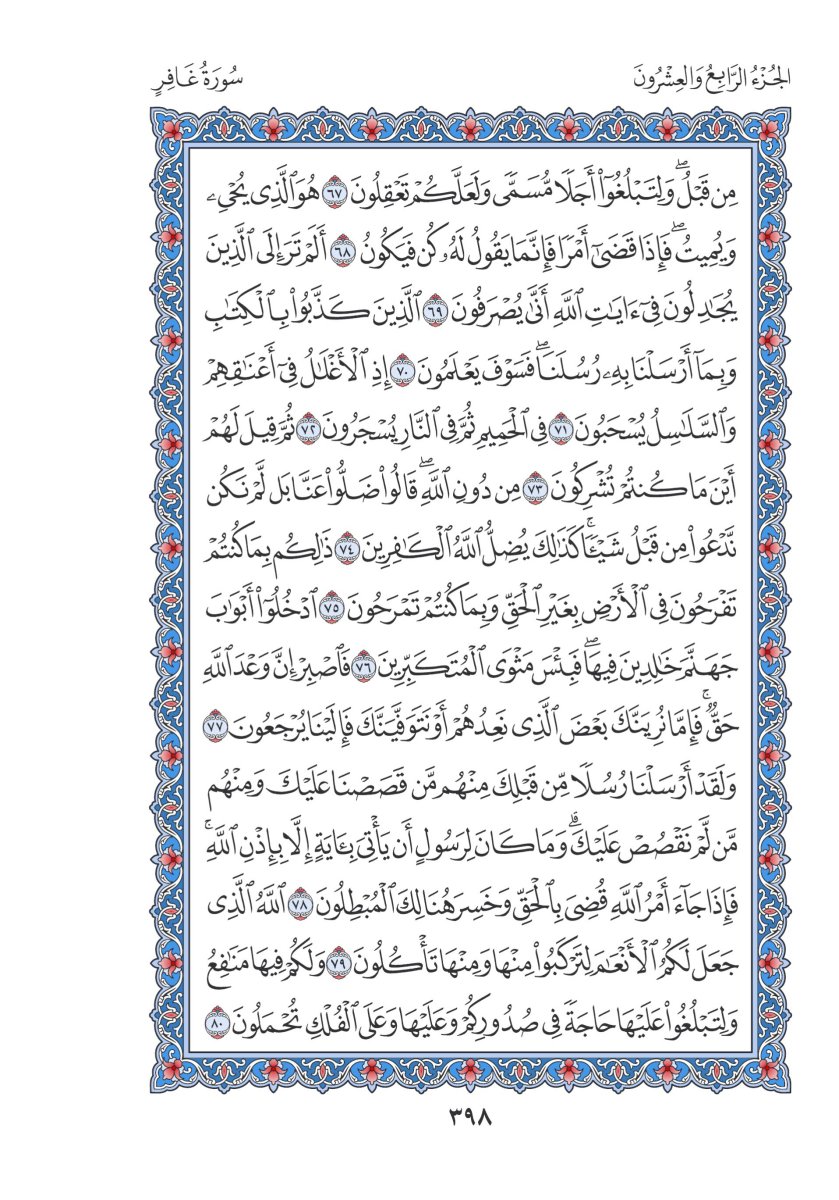 الجُزْءُ الرَّابِعُ وَالعِشْرُونَ
سُورَةُ غَافِرٍ
مِن قَبْلُۖ وَلِتَبْلُغُوٓاْ أَجَلٗا مُّسَمّٗى وَلَعَلَّكُمْ تَعْقِلُونَ ٦٧ هُوَ ٱلَّذِي يُحْيِۦ
وَيُمِيتُۖ فَإِذَا قَضَىٰٓ أَمْرٗا فَإِنَّمَا يَقُولُ لَهُۥ كُن فَيَكُونُ ٦٨ أَلَمْ تَرَ إِلَى ٱلَّذِينَ
يُجَٰدِلُونَ فِيٓ ءَايَٰتِ ٱللَّهِ أَنَّىٰ يُصْرَفُونَ ٦٩ ٱلَّذِينَ كَذَّبُواْ بِٱلْكِتَٰبِ
وَبِمَآ أَرْسَلْنَا بِهِۦ رُسُلَنَاۖ فَسَوْفَ يَعْلَمُونَ ٧٠ إِذِ ٱلْأَغْلَٰلُ فِيٓ أَعْنَٰقِهِمْ
وَٱلسَّلَٰسِلُ يُسْحَبُونَ ٧١ فِي ٱلْحَمِيمِ ثُمَّ فِي ٱلنَّارِ يُسْجَرُونَ ٧٢ ثُمَّ قِيلَ لَهُمْ
أَيْنَ مَا كُنتُمْ تُشْرِكُونَ ٧٣ مِن دُونِ ٱللَّهِۖ قَالُواْ ضَلُّواْ عَنَّا بَل لَّمْ نَكُن
نَّدْعُواْ مِن قَبْلُ شَيْـٔٗاۚ كَذَٰلِكَ يُضِلُّ ٱللَّهُ ٱلْكَٰفِرِينَ ٧٤ ذَٰلِكُم بِمَا كُنتُمْ
تَفْرَحُونَ فِي ٱلْأَرْضِ بِغَيْرِ ٱلْحَقِّ وَبِمَا كُنتُمْ تَمْرَحُونَ ٧٥ ٱدْخُلُوٓاْ أَبْوَٰبَ
جَهَنَّمَ خَٰلِدِينَ فِيهَاۖ فَبِئْسَ مَثْوَى ٱلْمُتَكَبِّرِينَ ٧٦ فَٱصْبِرْ إِنَّ وَعْدَ ٱللَّهِ
حَقّٞۚ فَإِمَّا نُرِيَنَّكَ بَعْضَ ٱلَّذِي نَعِدُهُمْ أَوْ نَتَوَفَّيَنَّكَ فَإِلَيْنَا يُرْجَعُونَ ٧٧
وَلَقَدْ أَرْسَلْنَا رُسُلٗا مِّن قَبْلِكَ مِنْهُم مَّن قَصَصْنَا عَلَيْكَ وَمِنْهُم
مَّن لَّمْ نَقْصُصْ عَلَيْكَۗ وَمَا كَانَ لِرَسُولٍ أَن يَأْتِيَ بِـَٔايَةٍ إِلَّا بِإِذْنِ ٱللَّهِۚ
فَإِذَا جَآءَ أَمْرُ ٱللَّهِ قُضِيَ بِٱلْحَقِّ وَخَسِرَ هُنَالِكَ ٱلْمُبْطِلُونَ ٧٨ ٱللَّهُ ٱلَّذِي
جَعَلَ لَكُمُ ٱلْأَنْعَٰمَ لِتَرْكَبُواْ مِنْهَا وَمِنْهَا تَأْكُلُونَ ٧٩ وَلَكُمْ فِيهَا مَنَٰفِعُ
وَلِتَبْلُغُواْ عَلَيْهَا حَاجَةٗ فِي صُدُورِكُمْ وَعَلَيْهَا وَعَلَى ٱلْفُلْكِ تُحْمَلُونَ ٨٠
٣٩٨